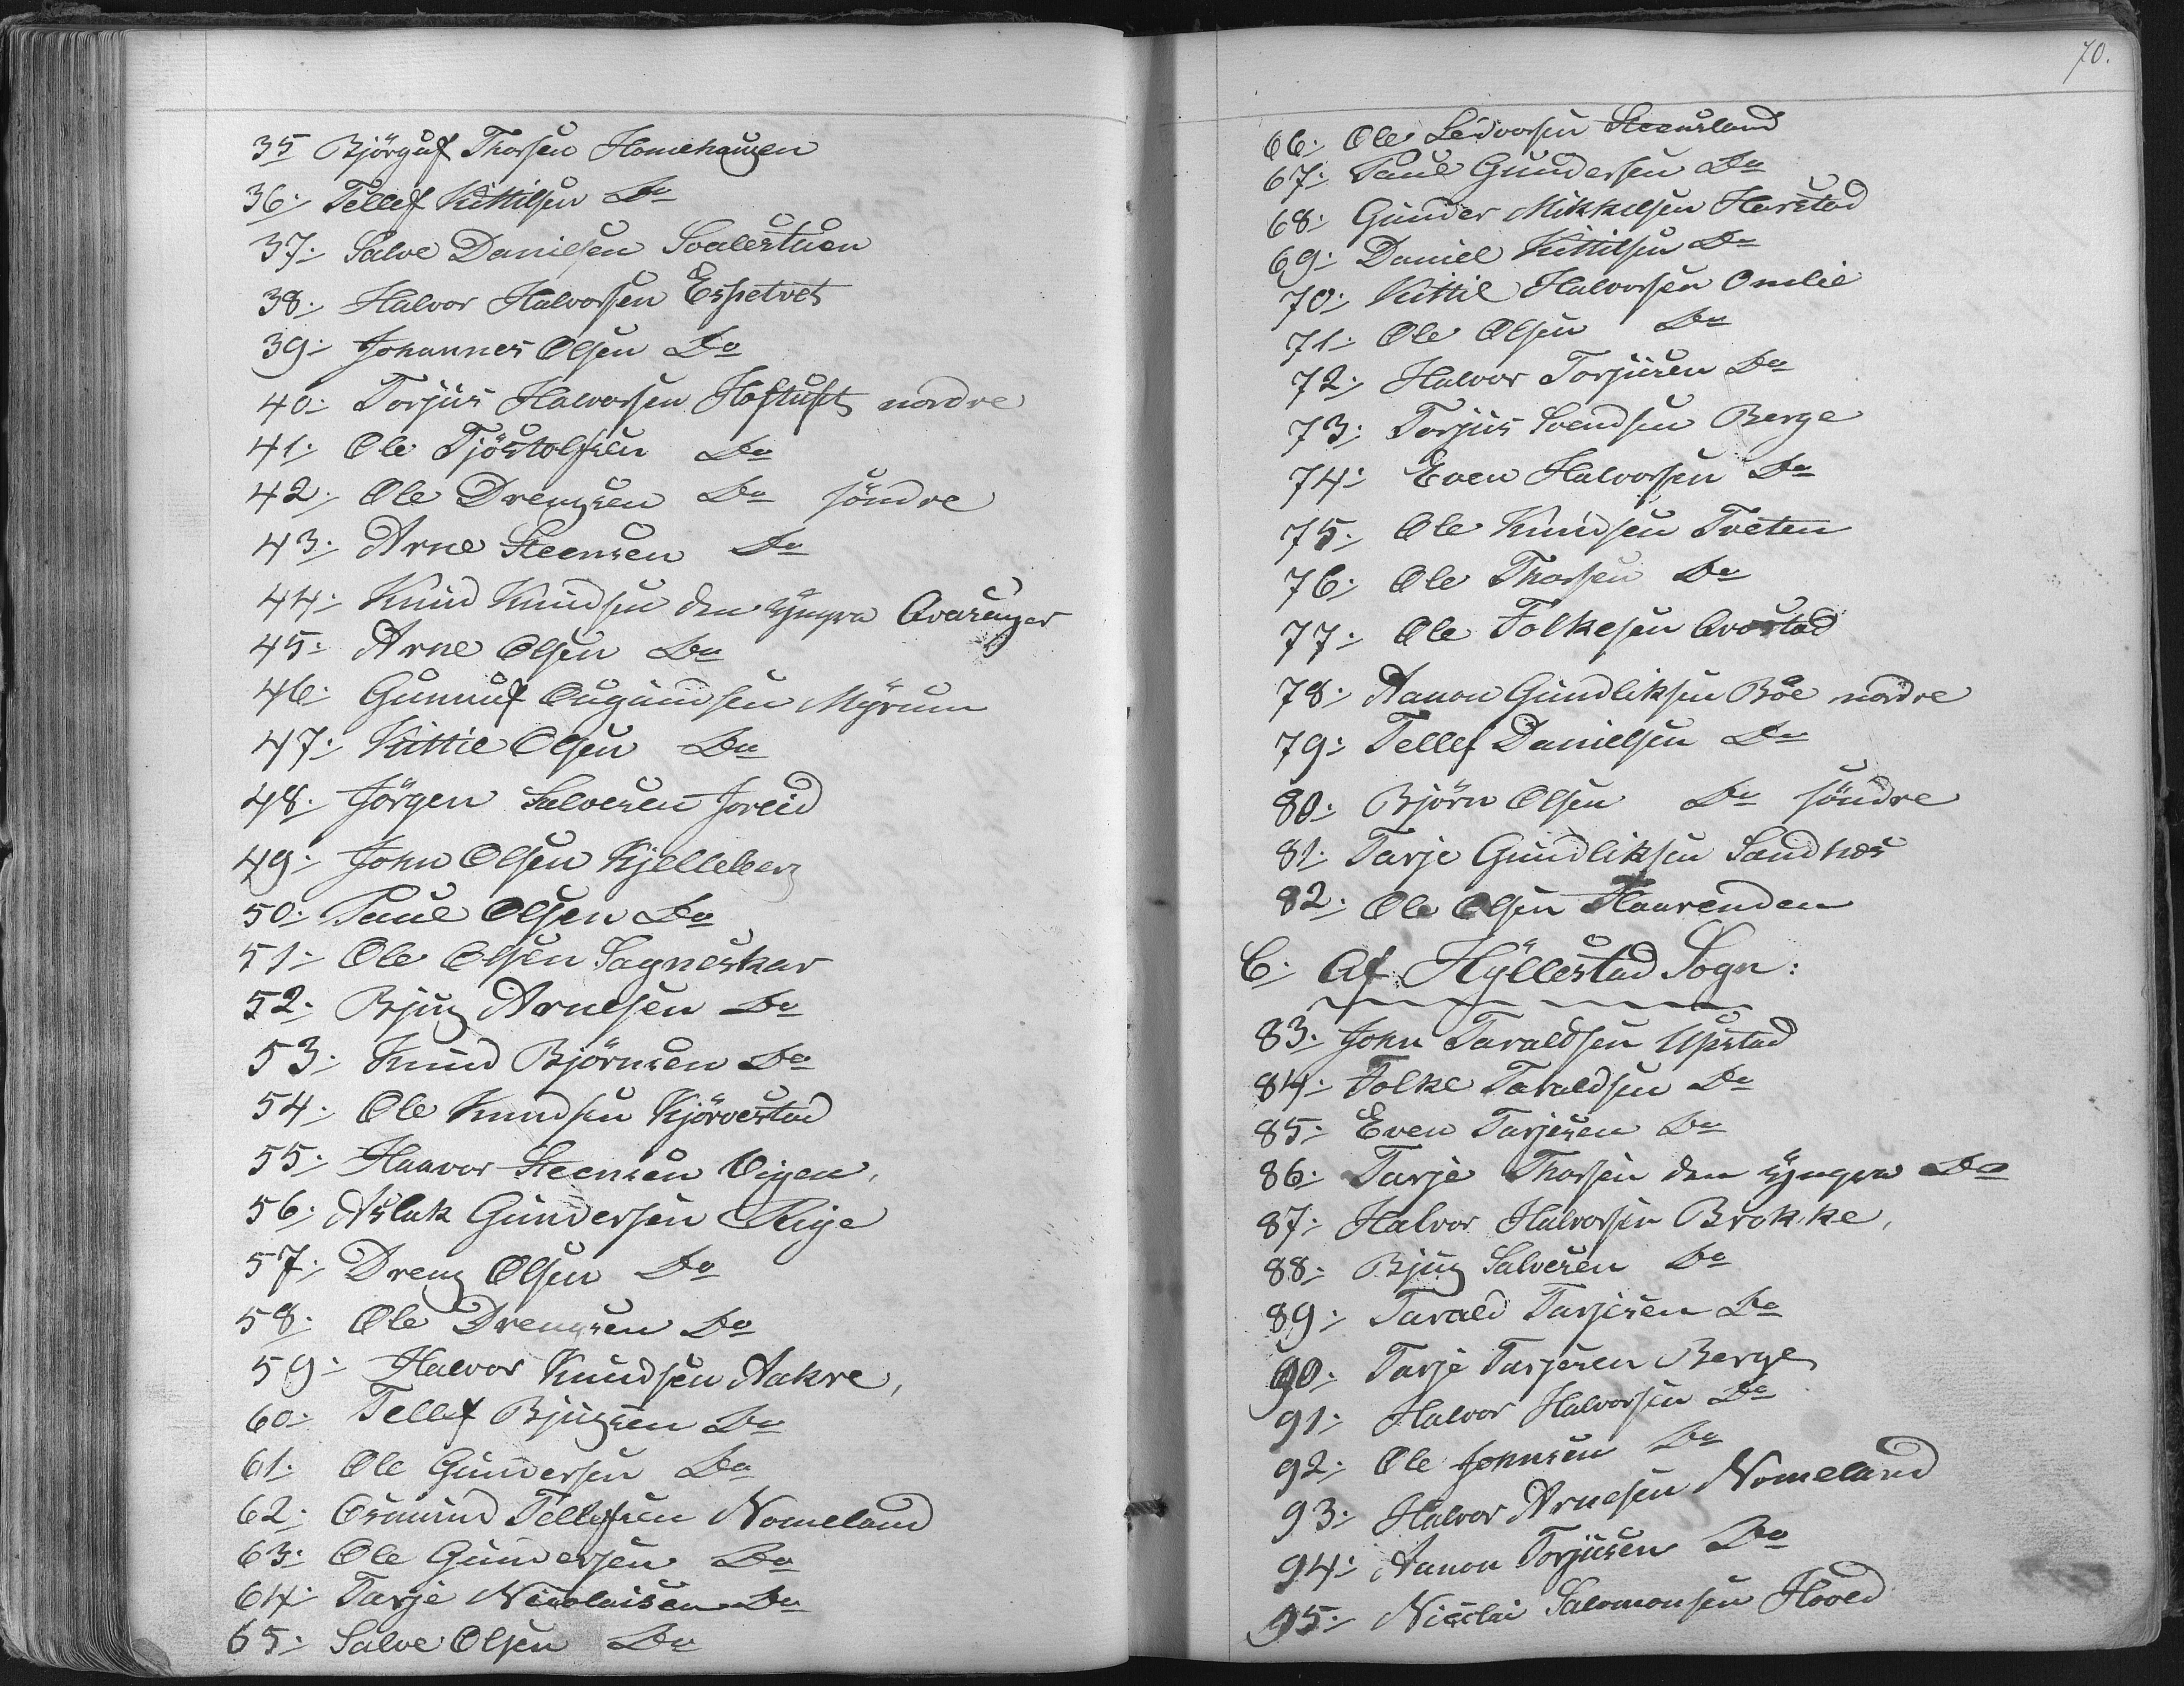 35 Björguf Thorsen Homehaugen
36. Tellef Kittilsen Do
37. Salve Danielsen Svalestuen
38. Halvor Halvorsen Espetvet
39. Johannes Olsen Do
40. Torjus Halvorsen Hoftuft nordre
41. Ole Tjöstolfsen Do
42. Ole Drengsen Do söndre
43. Arne Steensen Do
44. Knud Knudsen den yngre Qvasager
45. Arne Olsen Do
46. Gunnuf Ougundsen Myrum
47. Kittil Olsen Do
48. Jörgen Salvesen Joreid
49. John Olsen Kjelleberg
50. Paul Olsen Do
51. Ole Olsen Sagneskar
52. Bjug Arnesen Do
53. Knud Björnsen Do
54. Ole Knudsen Kjörvestad
55. Haavor Steensen Vigen,
56. Aslak Gundersen Rige
57. Dreng Olsen Do
58. Ole Drengsen Do
59. Halvor Knudsen Aakre,
60. Tellef Bjugsen Do
61. Ole Gundersen Do
62. Osmund Tellefsen Nomeland
63. Ole Gundersen Do
64. Tarje Nicolaisen Do
65. Salve Olsen Do
70.
66. Ole Leidvorsen Steensland
67. Paul Gundersen Do
68. Gunder Mikkelsen Harstad
69. Daniel Kittilsen Do
70. Kittil Halvorsen Omlie
71. Ole Olsen Do
72. Halvor Torjusen Do
73. Torjus Svendsen Berge
74. Even Halvorsen Do
75. Ole Knudsen Tveten
76. Ole Thorsen Do
77. Ole Folkesen Qvostad
78. Aanon Gundliksen Böe nordre
79. Tellef Danielsen Do
80. Björn Olsen Do söndre
81. Tarje Gundliksen Sandnes
82. Ole Olsen Haavenden
C. Af Hyllestad Sogn:
83. John Taraldsen Upstad
84. Folke Taraldsen Do
85. Even Tarjesen Do
86. Tarje Thorsen den yngre Do
87. Halvor Halvorsen Brokke,
88. Bjug Salvesen Do
89. Tarald Tarjesen Do
90. Tarje Tarjesen Berge
91. Halvor Halvorsen Do
92. Ole Johnsen Do
93. Halvor Arnesen Nomeland
94. Aanon Torjusen Do
95. Nicolai Salomonsen Hoved